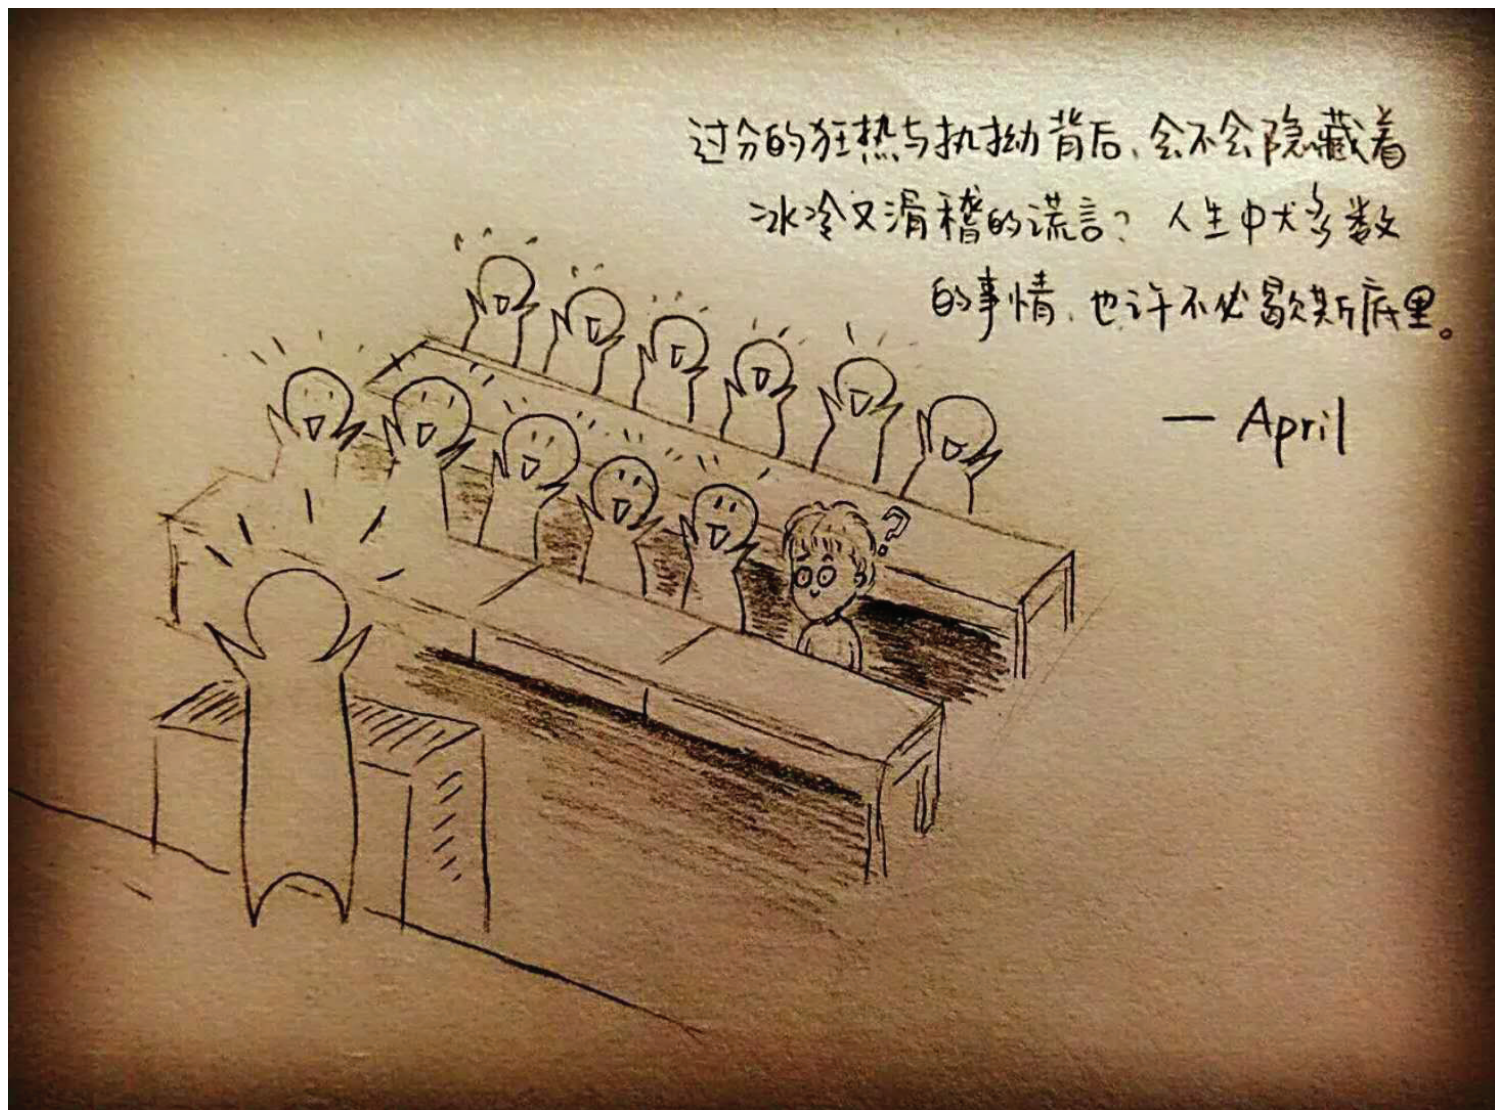 过分的狂热与执拗背后、会不会隐藏着
冰冷又滑稽的谎言？人生中大多数
的事情、也许不必歇斯底里。
— April
?